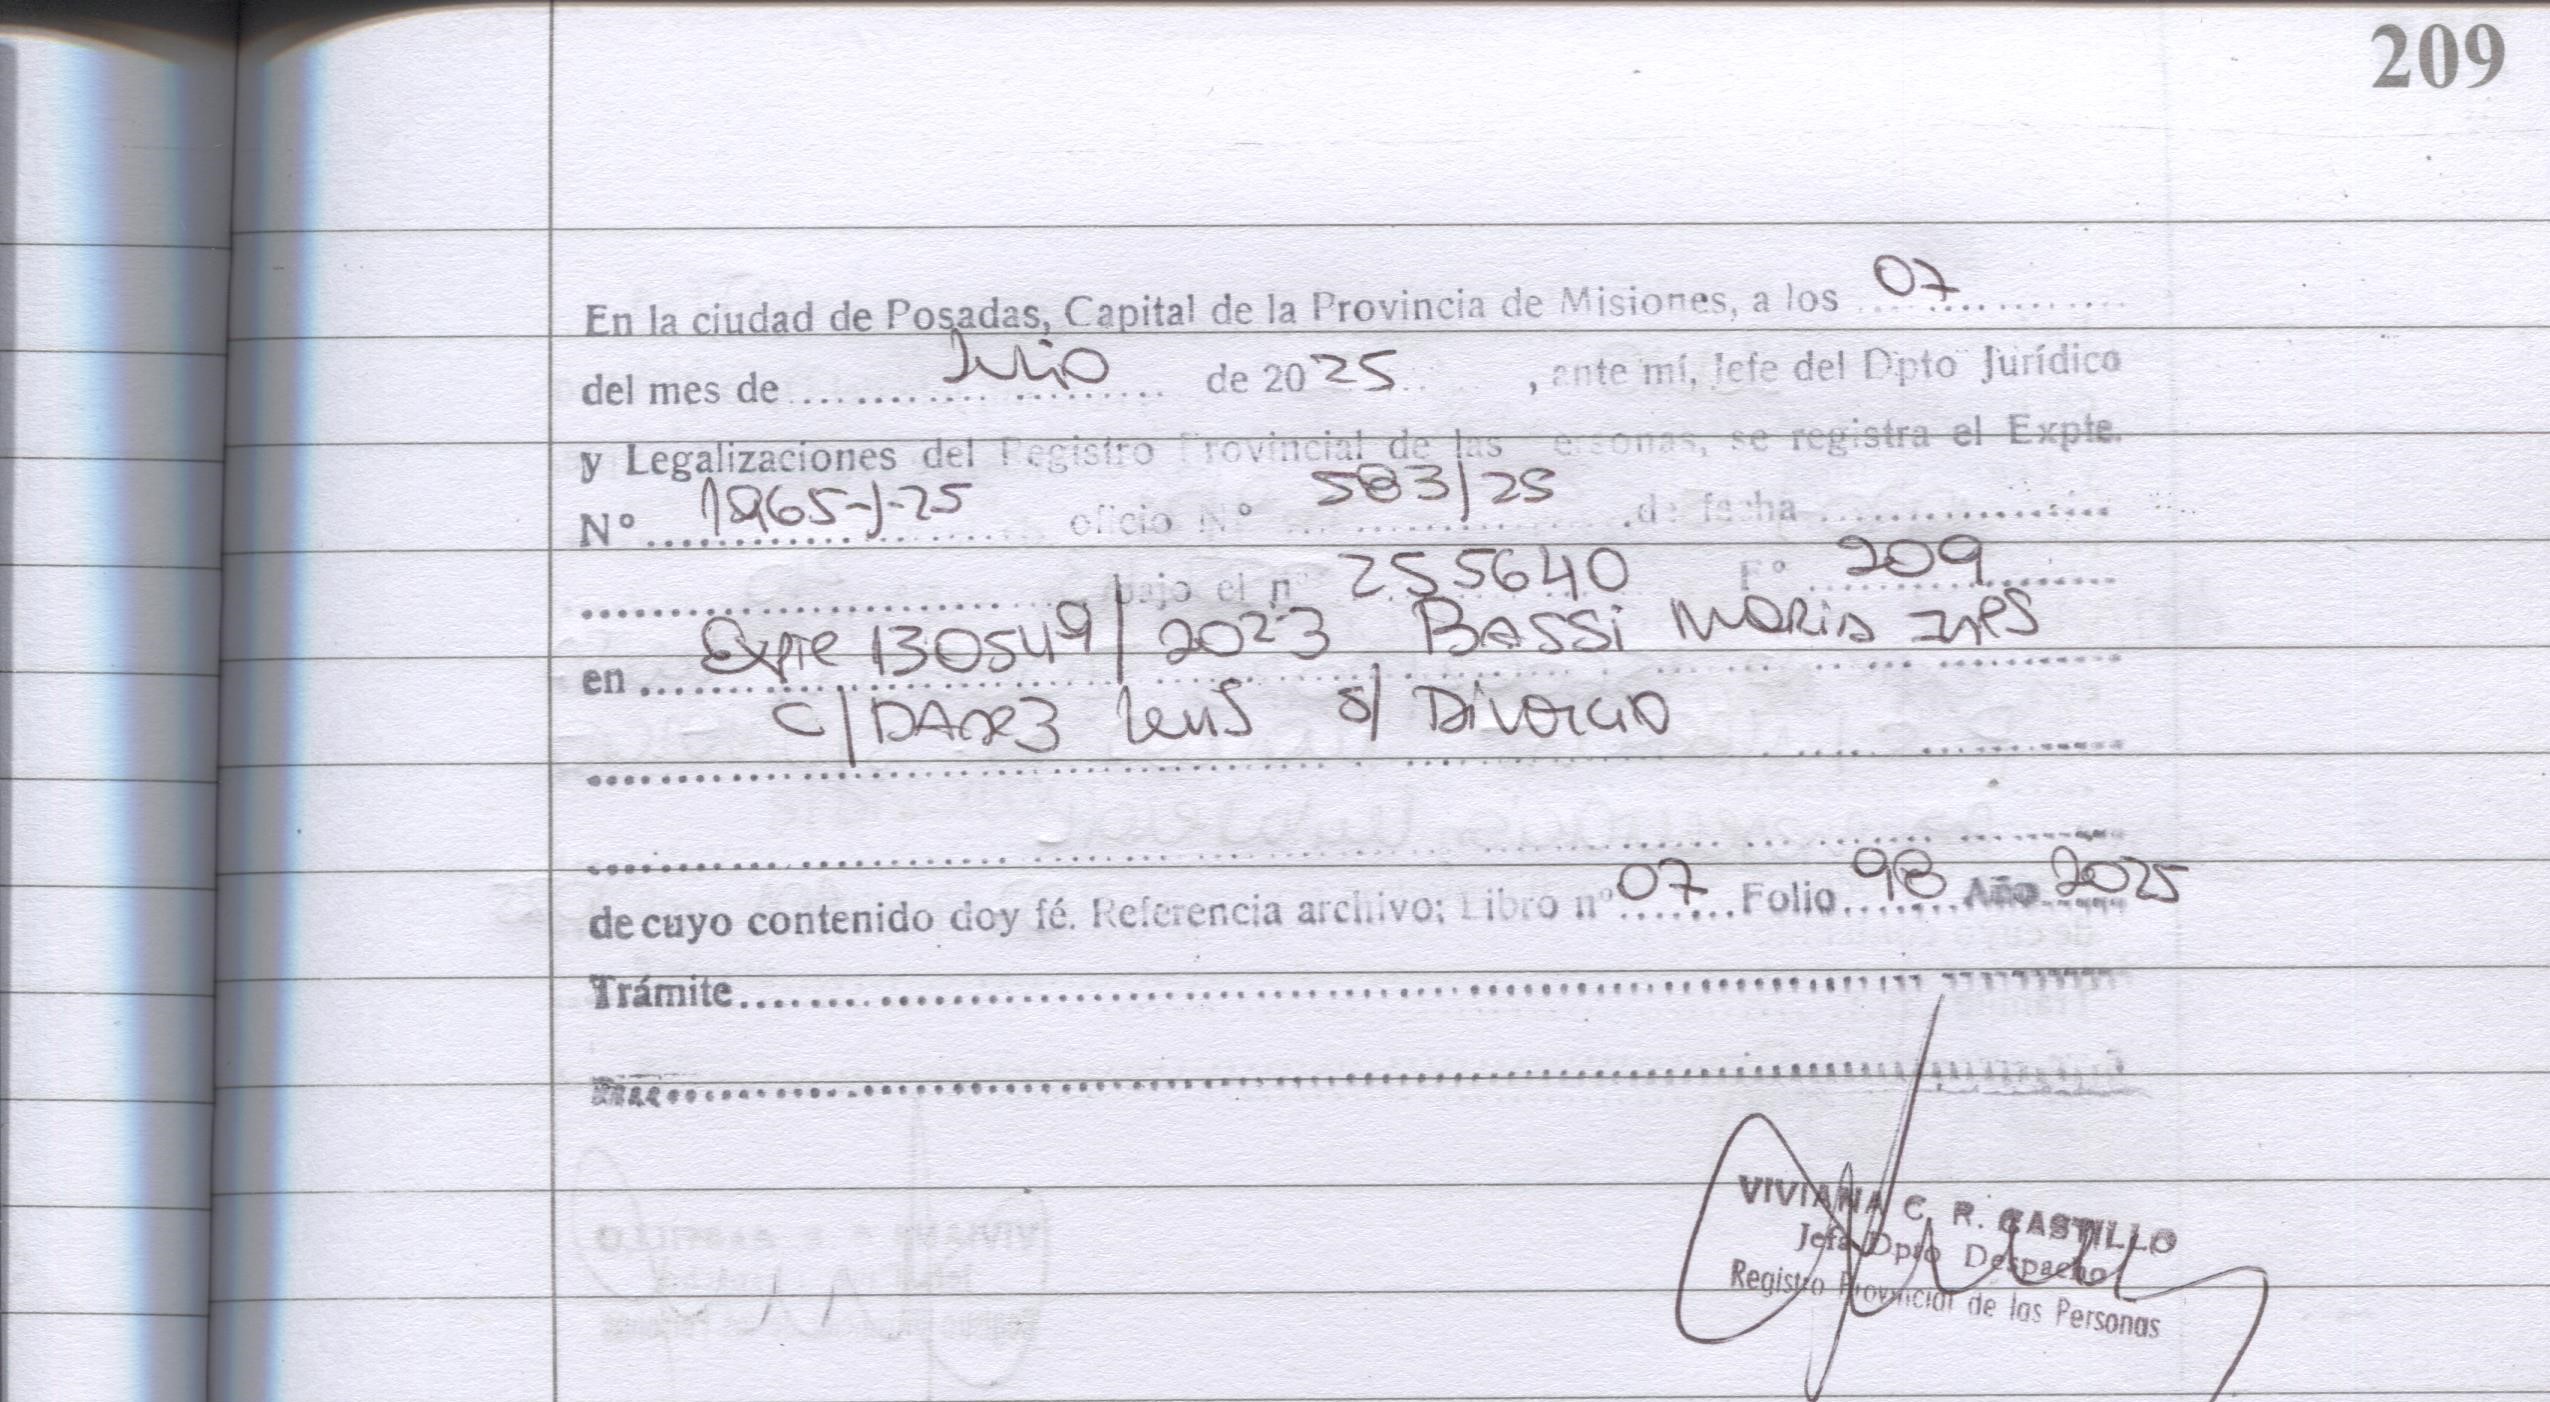 209
En la ciudad de Posadas, Capital de la Provincia de Misiones, a los 07
del mes de Julio de 2025, ante mí, Jefe del Dpto Jurídico
y Legalizaciones del Registro Provincial de las ersonas, se registra el Expte.
N° 1865-J-25 oficio N° 583/25 de fecha
bajo el n° 255640 F° 209
en Expte 130549/2023 BASSi MARIA INES
c/ s/ DIVORCIO
de cuyo contenido doy fé. Referencia archivo: Libro n° 07 Folio 98 Año 2025
Trámite
VIVIANA C. R. CASTILLO
Jefa Dpto Despacho
Registro Provincial de las Personas